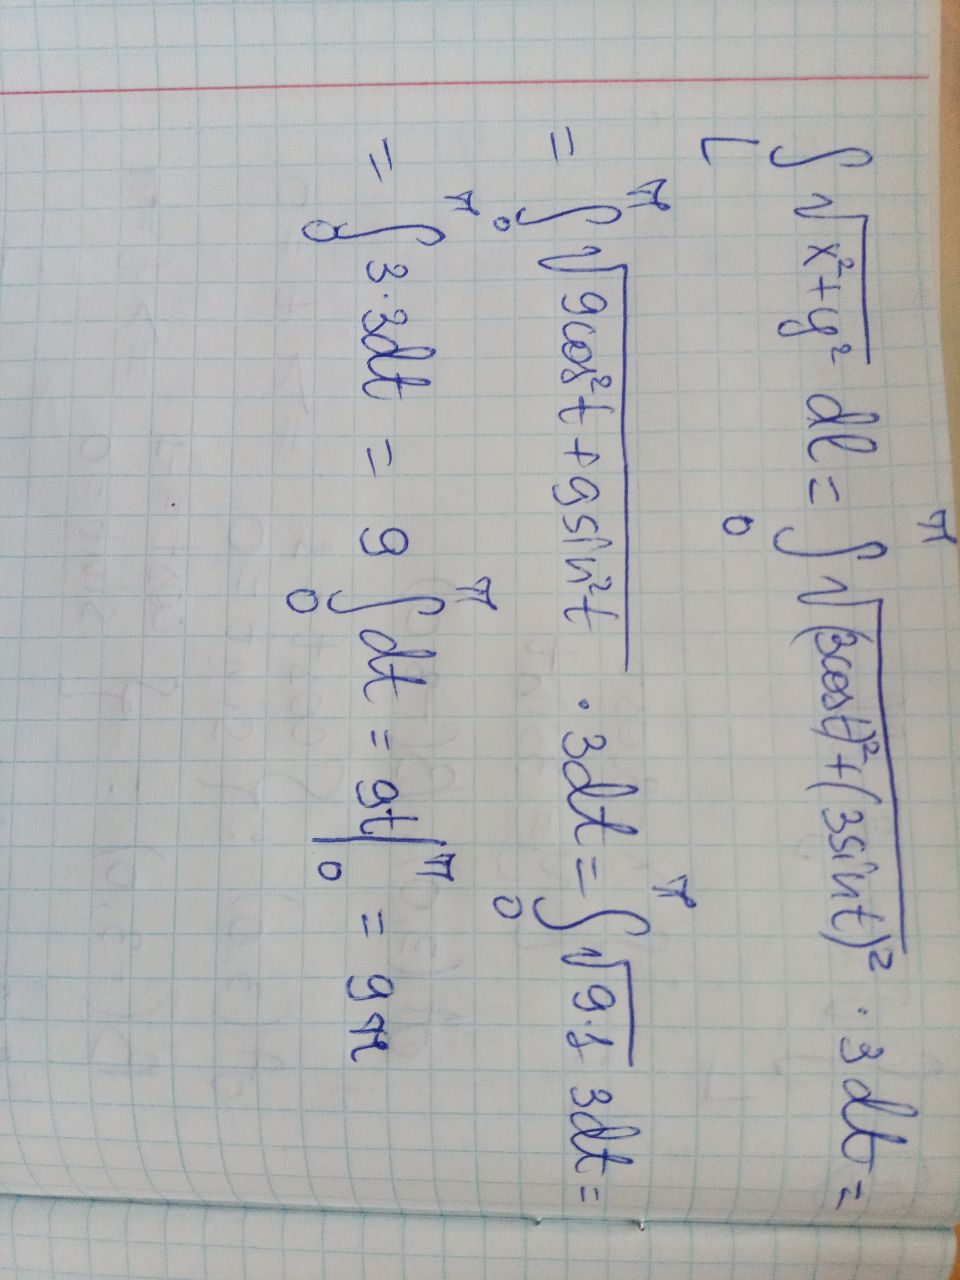 ∫_L √(x²+y²) dl = ∫_0^π √((3cost)²+(3sint)²) · 3dt =
= ∫_0^π √(9cos²t+9sin²t) · 3dt = ∫_0^π √(9·1) 3dt =
= ∫_0^π 3·3dt = 9 ∫_0^π dt = 9t|_0^π = 9π